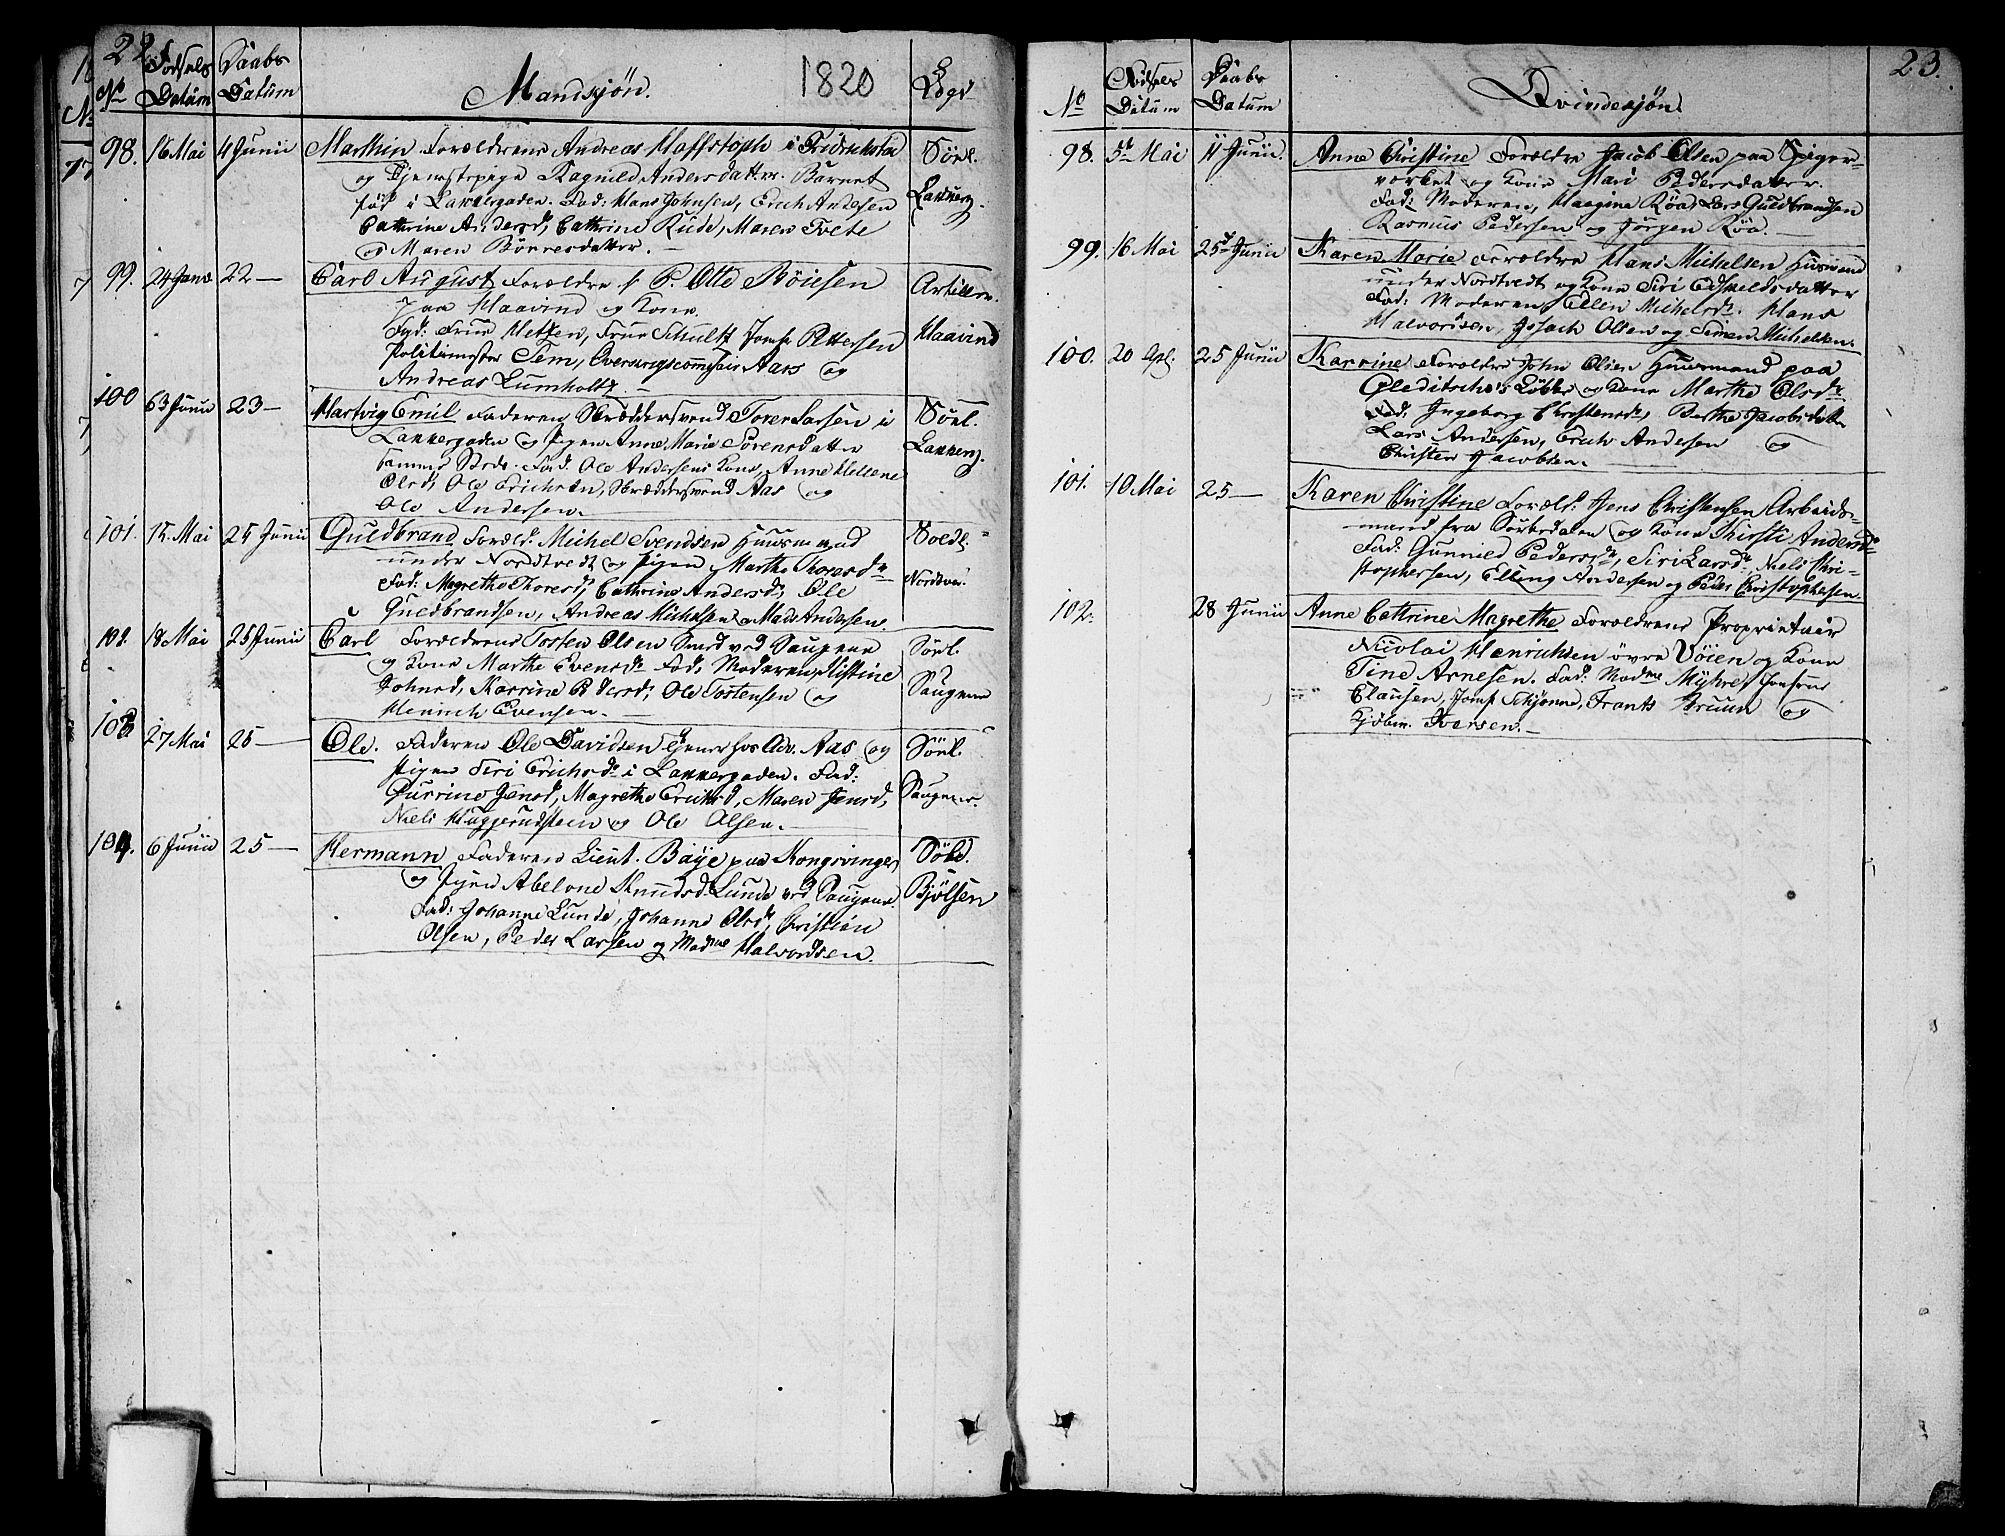 22.
No
Fødsels
Datum
Daabs
Datum
Mandkjøn.
1820
Sogn
98. 16 Mai 4 Junii Marthin Forældrene Andreas Haffstoph i Fridrichstad
og Tjenestepige Ragnild Andersdatter. Barnet
født i Lakkergaden. Fad: Hans Johnsen, Erich Andesen
Cathrine Andersd, Cathrine Rüde, Maren Tvete
og Maren Börresdatter.
Sönl.
Lakkerg.
99. 24 Janv 22 — Carl August Forældre P. Otto Böiesen
paa Haavind og Kone.
Fad: Frue Hetzen, Frue Schultz Jomf Pettersen
Politimester Sem, Overkrigscommisair Aars og
Andreas Lumholtz.
Artiller.
Haavind
100 3 Junii 23 — Hartvig Emil Faderen Skræddersvend Tore Larsen i
Lakkergaden og Pigen Anne Marie Sörensdatter
sammes Steds. Fad: Ole Andersens Kone, Anne Hellene
Olsd, Ole Erichsen, Skræddersvend Aas og
Ole Andersen.
Sönl.
Lakkerg.
101. 15 Mai 25 Junii Guldbrand Foræld: Michel Svendsen Huusmand
under Nordtvedt og Pigen Marthe Thoresdr
Fad: Magrethe Thoresd, Cathrine Andersd, Ole
Guldbrandsen, Andreas Michelsen og Mads Andersen.
Nordtvet.
102. 18 Mai 25 Junii Carl Forældrene Tosten Olsen Smed ved Saugene
og Kone Marthe Evensdr Fad: Moderen, Kistine
Johnsd, Karrine Pedersd; Ole Tostensen og
Henrich Evensen.
Sönl.
Saugene
103 27 Mai 25 — Ole. Faderen Ole Davidsen tjener hos Adv. Aas og
Pigen Siri Erichsdr i Lakkergaden. Fad:
Gurrine Jensd, Magrethe Erichsd, Maren Jensd,
Niels Haggerudsteen og Ole Olsen.
Sönl.
Saugene.
104. 6 Junii 25 — Hermann Faderen Lieut. Baÿe paa Kongsvinger
og Pigen Abelone Knudsd. Lunde ved Saugene
Fad: Johanne Lunde, Johanne Olsdr, Christian
Olsen, Peder Larsen og Madme Halvordsen.
Bjölsen
23.
No
Födsels
Datum
Daabs
Datum
Qvindekjön
98. 5te Mai 11 Junii. Anne Christine Forældre Jacob Olsen paa Spiger-
værket og Kone Mari Pedersdatter.
Fad: Moderen, Haagine Röa, Lars Guldbrandsen
Rasmus Pedersen og Jörgen Röa.
99. 16 Mai 25de Junii Karen Marie Forældre Hans Michelsen Huusmand
under Nordtvedt og Kone Siri Eskeldsdatter
Fad: Moderen, Ellen Michelsdr. Hans
Halvorsen, Olsen og Simen Michelsen.
100. 20 Apl. 25 Junii Karrine Forældre John Olsen Huusmand paa
Gleditsches Lökke og Kone Marthe Olsdr
Fad: Ingeborg Christensdr, Berthe Jacobsdatter
Lars Andersen, Erich Andersen og
Christen Jacobsen.
101. 10 Mai 25 — Karen Christine Foræld: Jens Christensen Arbeids-
mand fra Sörkedalen og Kone Kirsti Andersdr
Fad: Gunnild Pedersdr, Siri Larsdr, Niels Chri-
stophersen, Elling Andersen og Peder Christophersen.
102. 28 Junii Anne Cathrine Magrethe Forældrene Proprietair
Nicolai Henrichsen övre Vöien og Kone
Tine Arnesen. Fad: Madme Mÿhre, Jomfrue
Clausen, Jomf Schjönne, Frants Bruun og
Kjöbm. Iversen.